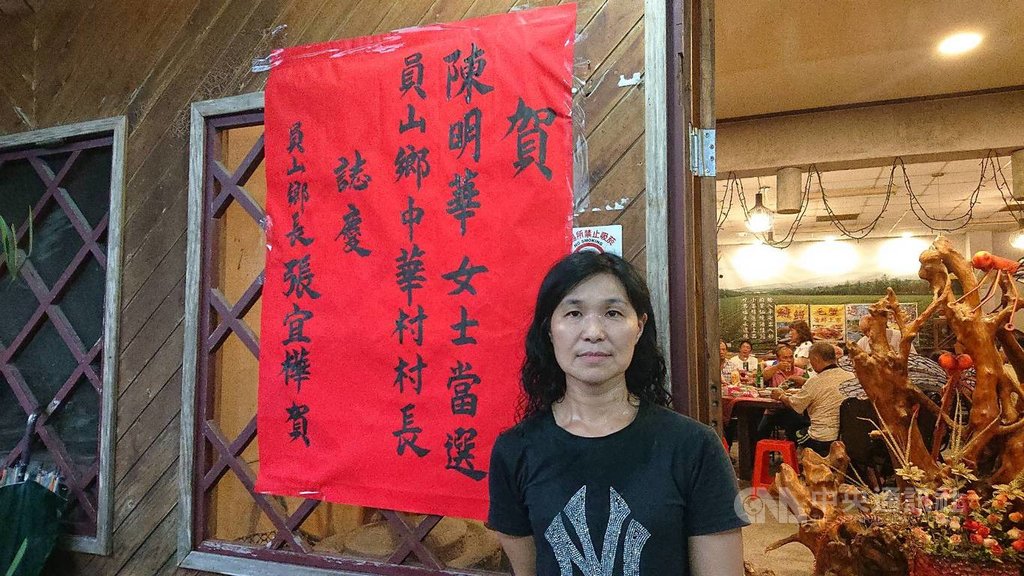 賀
陳明華女士當選
員山鄉中華村村長
誌慶
員山鄉長張宜樺賀
所禁止吸菸
NO SMOKING
NY
中央通訊社